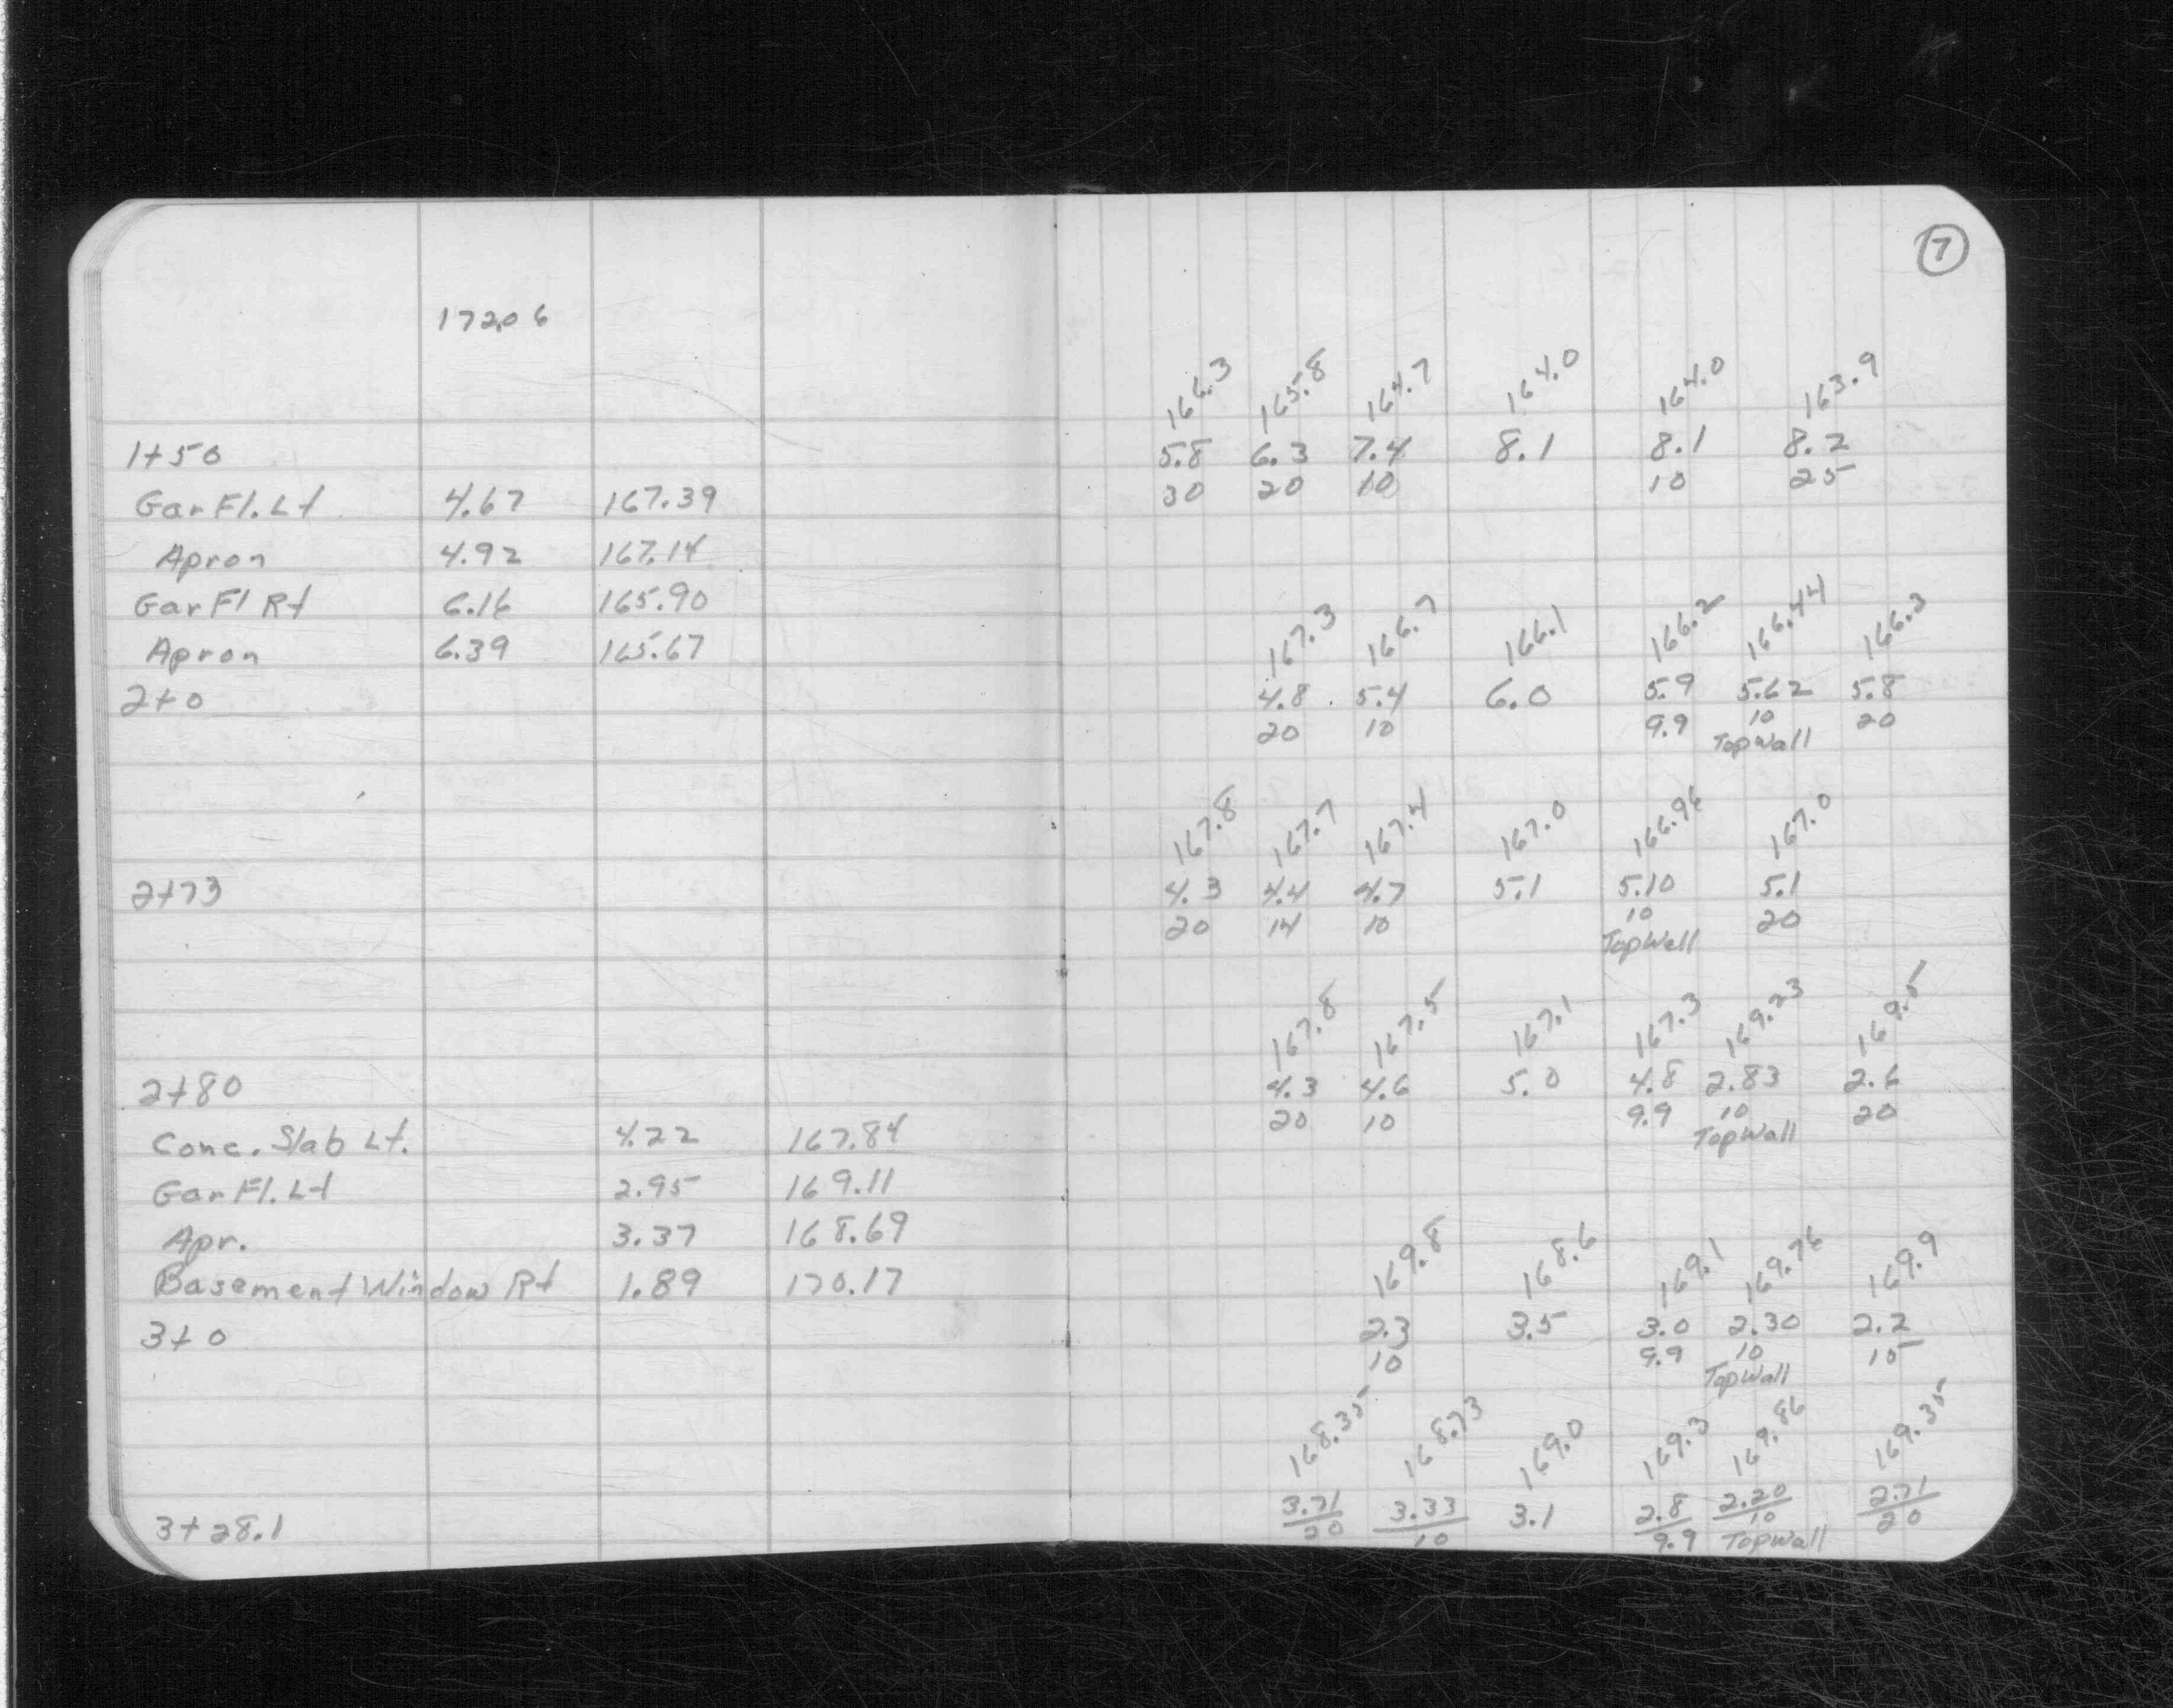 7
172.06
166.3 165.8 164.7 164.0 164.0 163.9
1+50 5.8 6.3 7.4 8.1 8.1 8.2
30 20 10 10 25
Gar Fl. Lt 4.67 167.39
Apron 4.92 167.14
Gar Fl Rt 6.16 165.90
Apron 6.39 165.67
167.3 166.7 166.1 166.2 166.44 166.3
2+0 4.8 5.4 6.0 5.9 5.62 5.8
20 10 9.9 10 20
Top Wall
167.8 167.7 167.4 167.0 166.96 167.0
2+73 4.3 4.4 4.7 5.1 5.10 5.1
20 14 10 10 20
Top Wall
167.8 167.5 167.1 167.3 169.23 169.5
2+80 4.3 4.6 5.0 4.8 2.83 2.6
20 10 9.9 10 20
Top Wall
Conc. Slab Lt. 4.22 167.84
Gar Fl. Lt 2.95 169.11
Apr. 3.37 168.69
Basement Window Rt 1.89 170.17
169.8 168.6 169.1 169.76 169.9
3+0 2.3 3.5 3.0 2.30 2.2
10 9.9 10 15
Top Wall
168.35 168.73 169.0 169.3 169.86 169.35
3+28.1 3.71 3.33 3.1 2.8 2.20 2.71
20 10 9.9 10 20
Top Wall